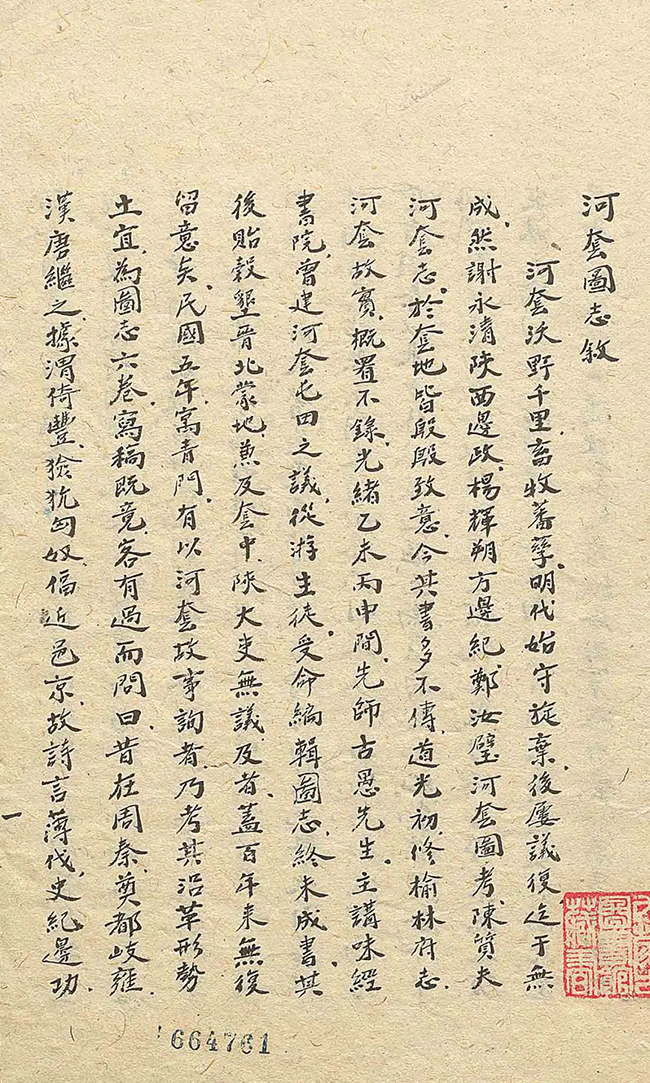 河套圖志敘
河套沃野千里、畜牧蕃孳、明代始守旋棄、後屢議復迄于無
成、然謝永清陝西邊政、楊輝朔方邊紀、鄭汝璧河套圖考、陳質夫
河套志、於套地皆殷殷致意、今其書多不傳、道光初、修榆林府志、
河套故實、概置不錄、光緒乙未丙申間、先師古愚先生、主講味經
書院、曾建河套屯田之議、從游生徒、受命編輯圖志、終未成書、其
後貽穀墾晉北蒙地、兼及套中、陝大吏無議及者、蓋百年來無復
留意矣、民國五年、寓青門、有以河套故事詢者、乃考其沿革形勢
土宜、為圖志六卷、寫稿既竟、客有過而問曰、昔在周秦、奠都岐雍、
漢唐繼之、據渭倚豐、獫狁匈奴、偪近邑京、故詩言薄伐、史紀邊功、
一
664761